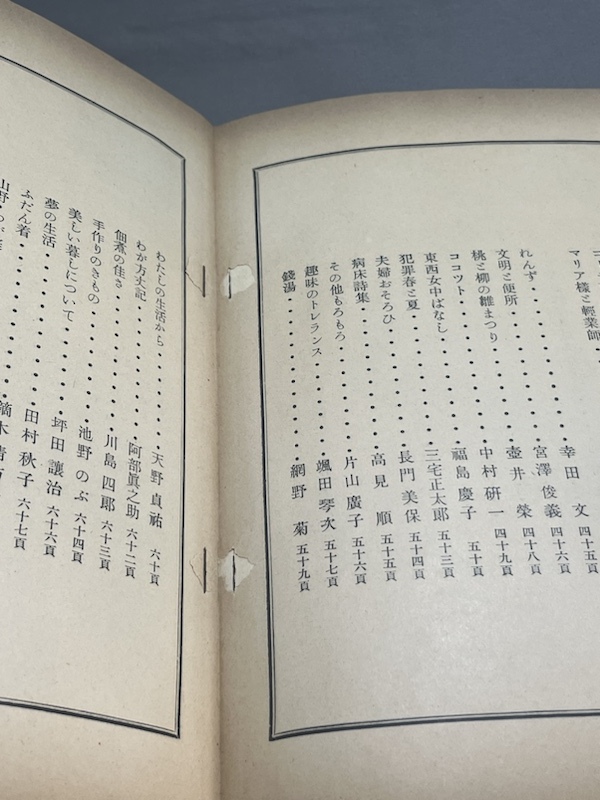 マリア様と輕業師
れんず・・・・・・・・幸田 文 四十五頁
文明と便所・・・・・・・・宮澤俊義 四十六頁
桃と柳の雛まつり・・・・・・・・壺井 榮 四十八頁
ココツト・・・・・・・・中村研一 四十九頁
東西女中ばなし・・・・・・・・福島慶子 五十頁
犯罪春と夏・・・・・・・・三宅正太郎 五十三頁
夫婦おそろひ・・・・・・・・長門美保 五十四頁
病床詩集・・・・・・・・高見 順 五十五頁
その他もろもろ・・・・・・・・片山廣子 五十六頁
趣味のトレランス・・・・・・・・颯田琴次 五十七頁
錢湯・・・・・・・・網野 菊 五十九頁
わたしの生活から・・・・・・・・天野貞祐 六十頁
わが方丈記・・・・・・・・阿部眞之助 六十二頁
佃煮の佳さ・・・・・・・・川島四郎 六十三頁
手作りのきもの・・・・・・・・池野のぶ 六十四頁
美しい暮しについて・・・・・・・・坪田讓治 六十六頁
夢の生活・・・・・・・・田村秋子 六十七頁
ふだん着・・・・・・・・